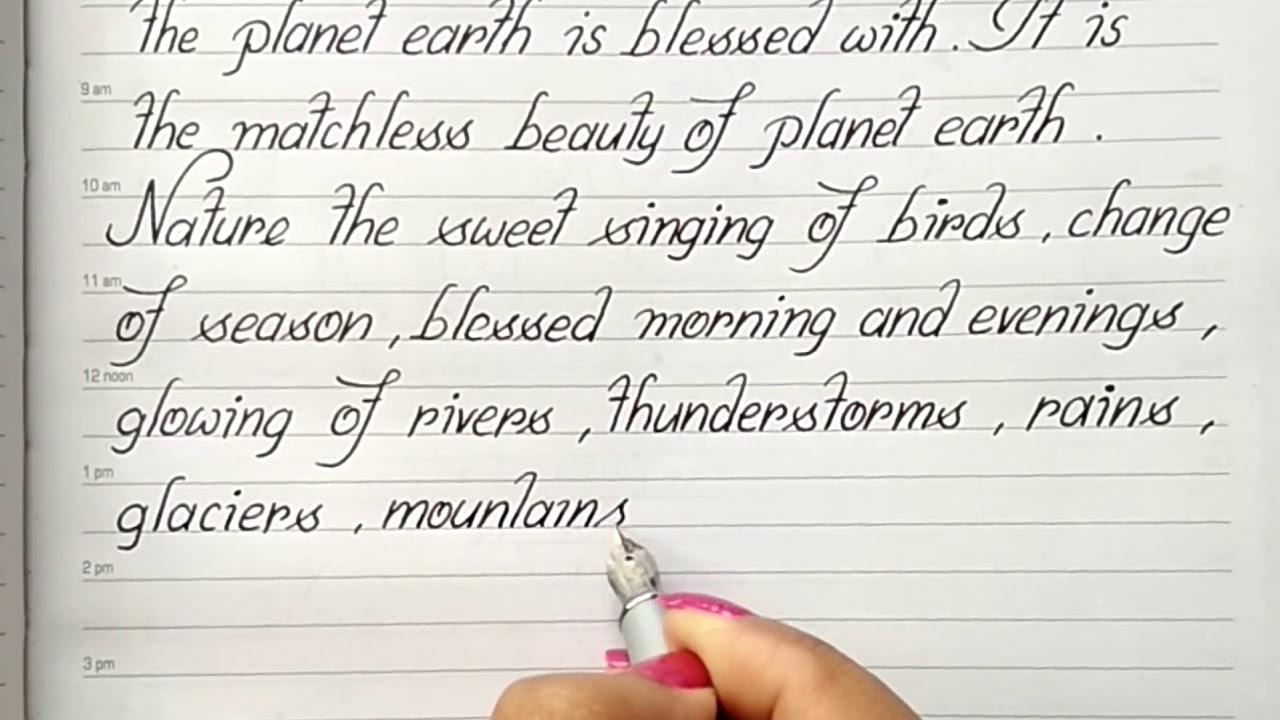 the planet earth is blessed with. It is
9 am
the matchless beauty of planet earth.
10 am
Nature the sweet singing of birds, change
11 am
of season, blessed morning and evenings,
12 noon
glowing of rivers, thunderstorms, rains,
1 pm
glaciers, mountains
2 pm
3 pm